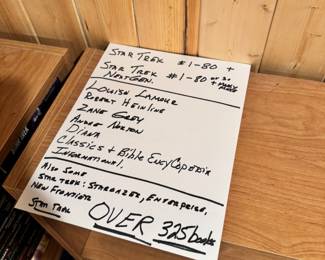 STAR TREK #1-80 +
STAR TREK
NEXTGEN. #1-80 or so
LOUISH LAMOUR
ROBERT HEINLINE
ZANE GREY
ANDRE NORTON
DIANA
CLASSICS & BIBLE ENCYCOPEDIA
INTERNATIONAL.
ALSO SOME
STAR TREK: STARGAZER, ENTERPRISE,
NEW FRONTIER
STAR TREK
OVER 325 books